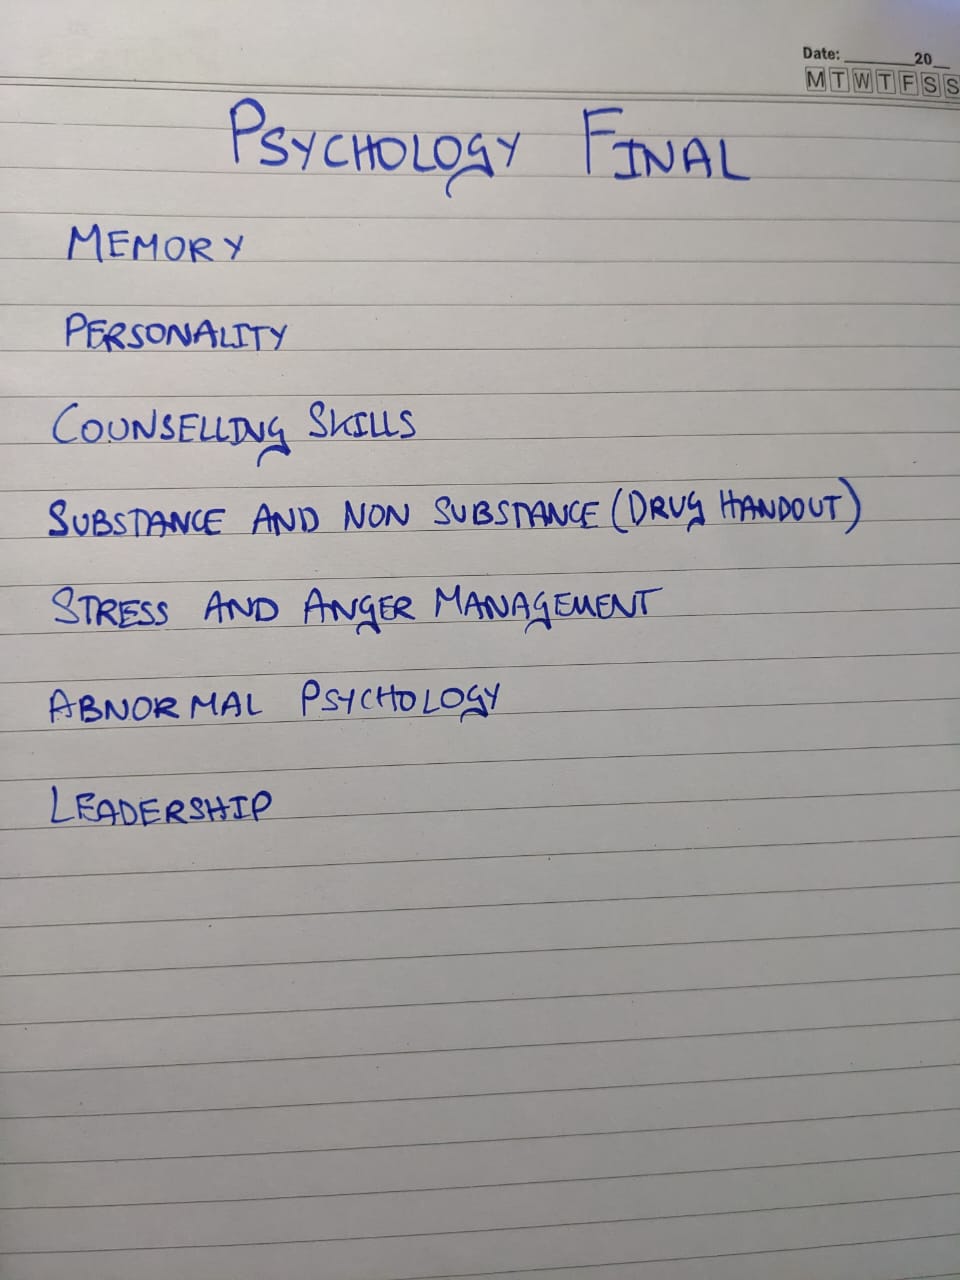 Date: ________20__
M T W T F S S
PSYCHOLOGY FINAL
MEMORY
PERSONALITY
COUNSELLING SKILLS
SUBSTANCE AND NON SUBSTANCE (DRUG HANDOUT)
STRESS AND ANGER MANAGEMENT
ABNORMAL PSYCHOLOGY
LEADERSHIP